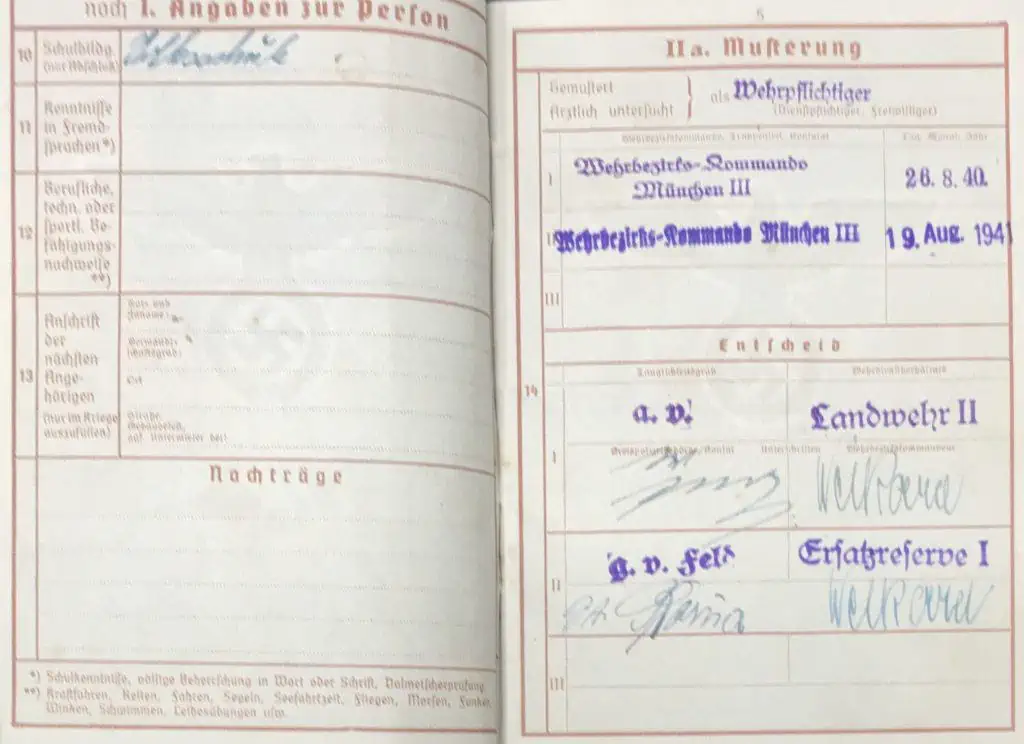 noch I. Angaben zur Person
10
Schulbildg.
(nur Abschluß)
Volksschule
11
Kenntnisse
in Fremd-
sprachen*)
12
Berufliche,
techn. oder
sportl. Be-
fähigungs-
nachweise
**)
13
Anschrift
der
nächsten
Ange-
hörigen
(nur im Kriege
auszufüllen)
Vor- und
Zuname:
Verwandt-
schaftsgrad:
Ort
Straße,
Gebäudeteil,
auf Untermieter bei:
Nachträge
*) Schulkenntnisse, völlige Beherrschung in Wort oder Schrift, Dolmetscherprüfung
**) Kraftfahren, Reiten, Fahren, Segeln, Seefahrtzeit, Fliegen, Morsen, Funker,
Winken, Schwimmen, Leibesübungen usw.
IIa. Musterung
Gemustert
Ärztlich untersucht
als Wehrpflichtiger
(Dienstpflichtiger, Freiwilliger)
I
Wehrbezirks-Kommando
München III
26.8.40.
II
Wehrbezirks-Kommando München III
19. Aug. 1941
III
14
Entscheid
Tauglichkeitsgrad
Wehrdienstverhältnis
a. v.
Landwehr II
I
Unterschriften
g. v. Feld
Ersatzreserve I
II
III